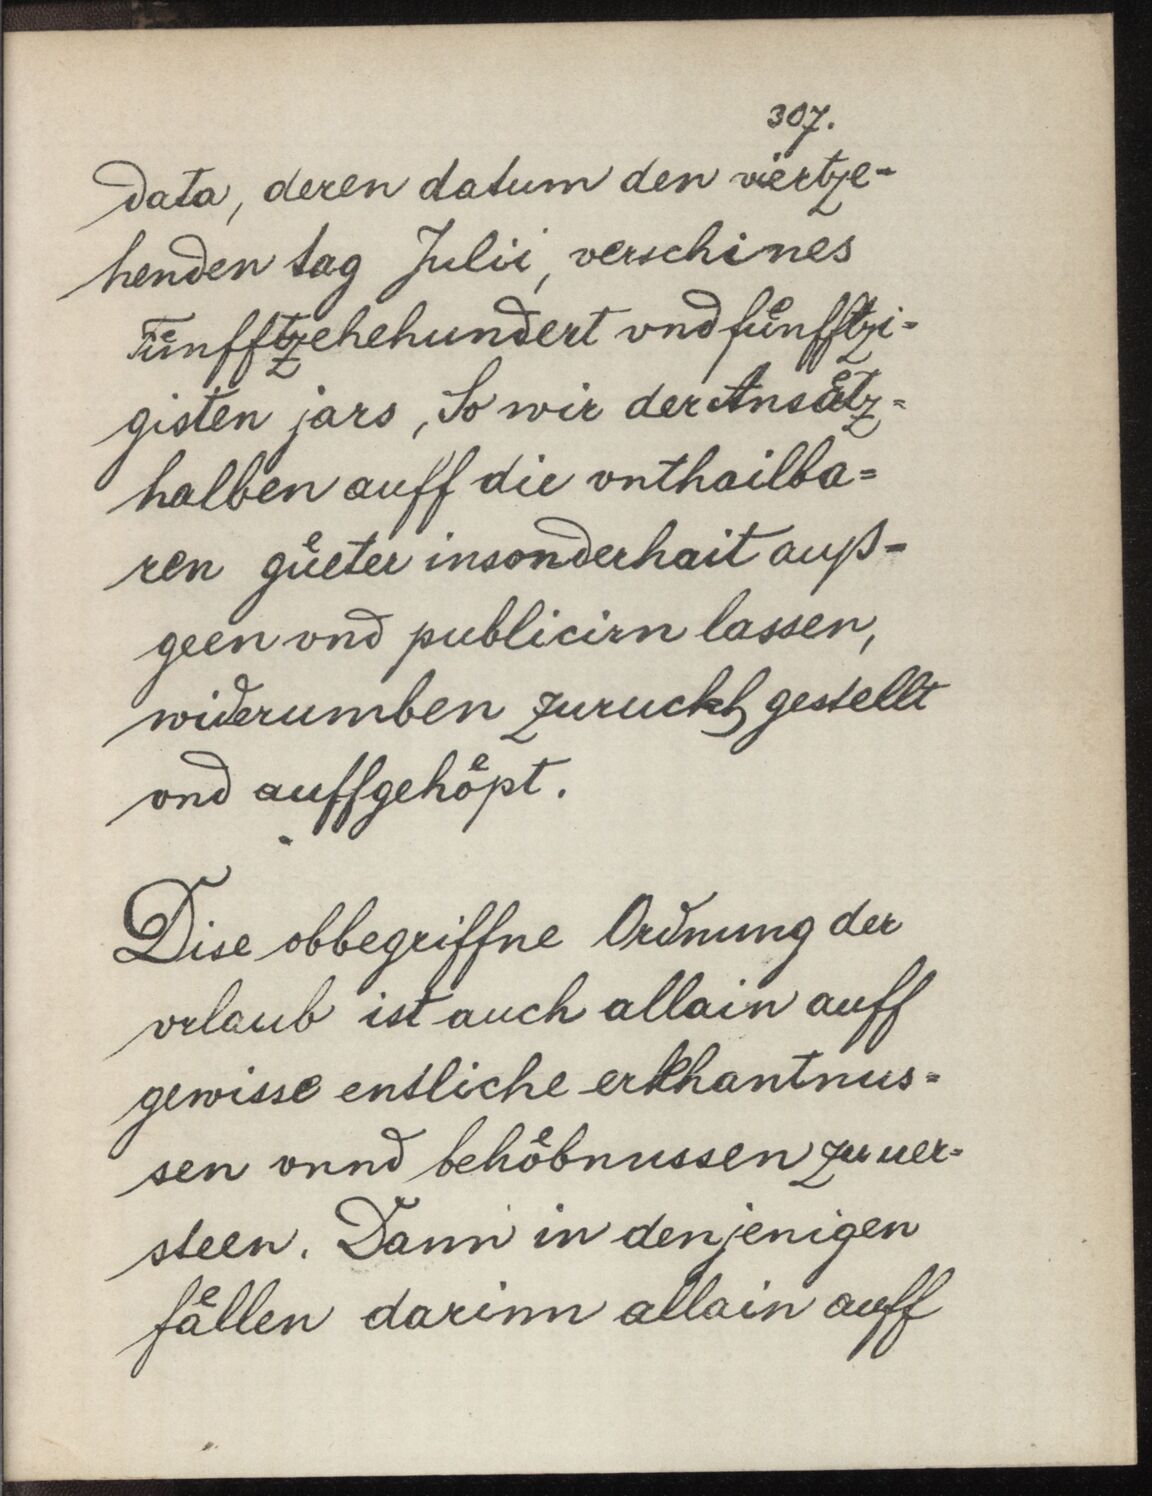 307.
data, deren datum den viertze-
henden tag Julii, verschines
Fuͤnfftzehehundert vnd fuͤnfftzi-
gisten jars, So wir der Ansaͤtz-
halben auff die vnthailba-
ren guͤeter insonderhait auß-
geen vnd publicirn lassen,
widerumben zuruckh gestellt
vnd auffgehoͤpt.
Dise obbegriffne Ordnung der
vrlaub ist auch allain auff
gewisse entliche erkhantnus-
sen vnnd behoͤbnussen zuuer-
steen. Dann in denjenigen
faͤllen darinn allain auff